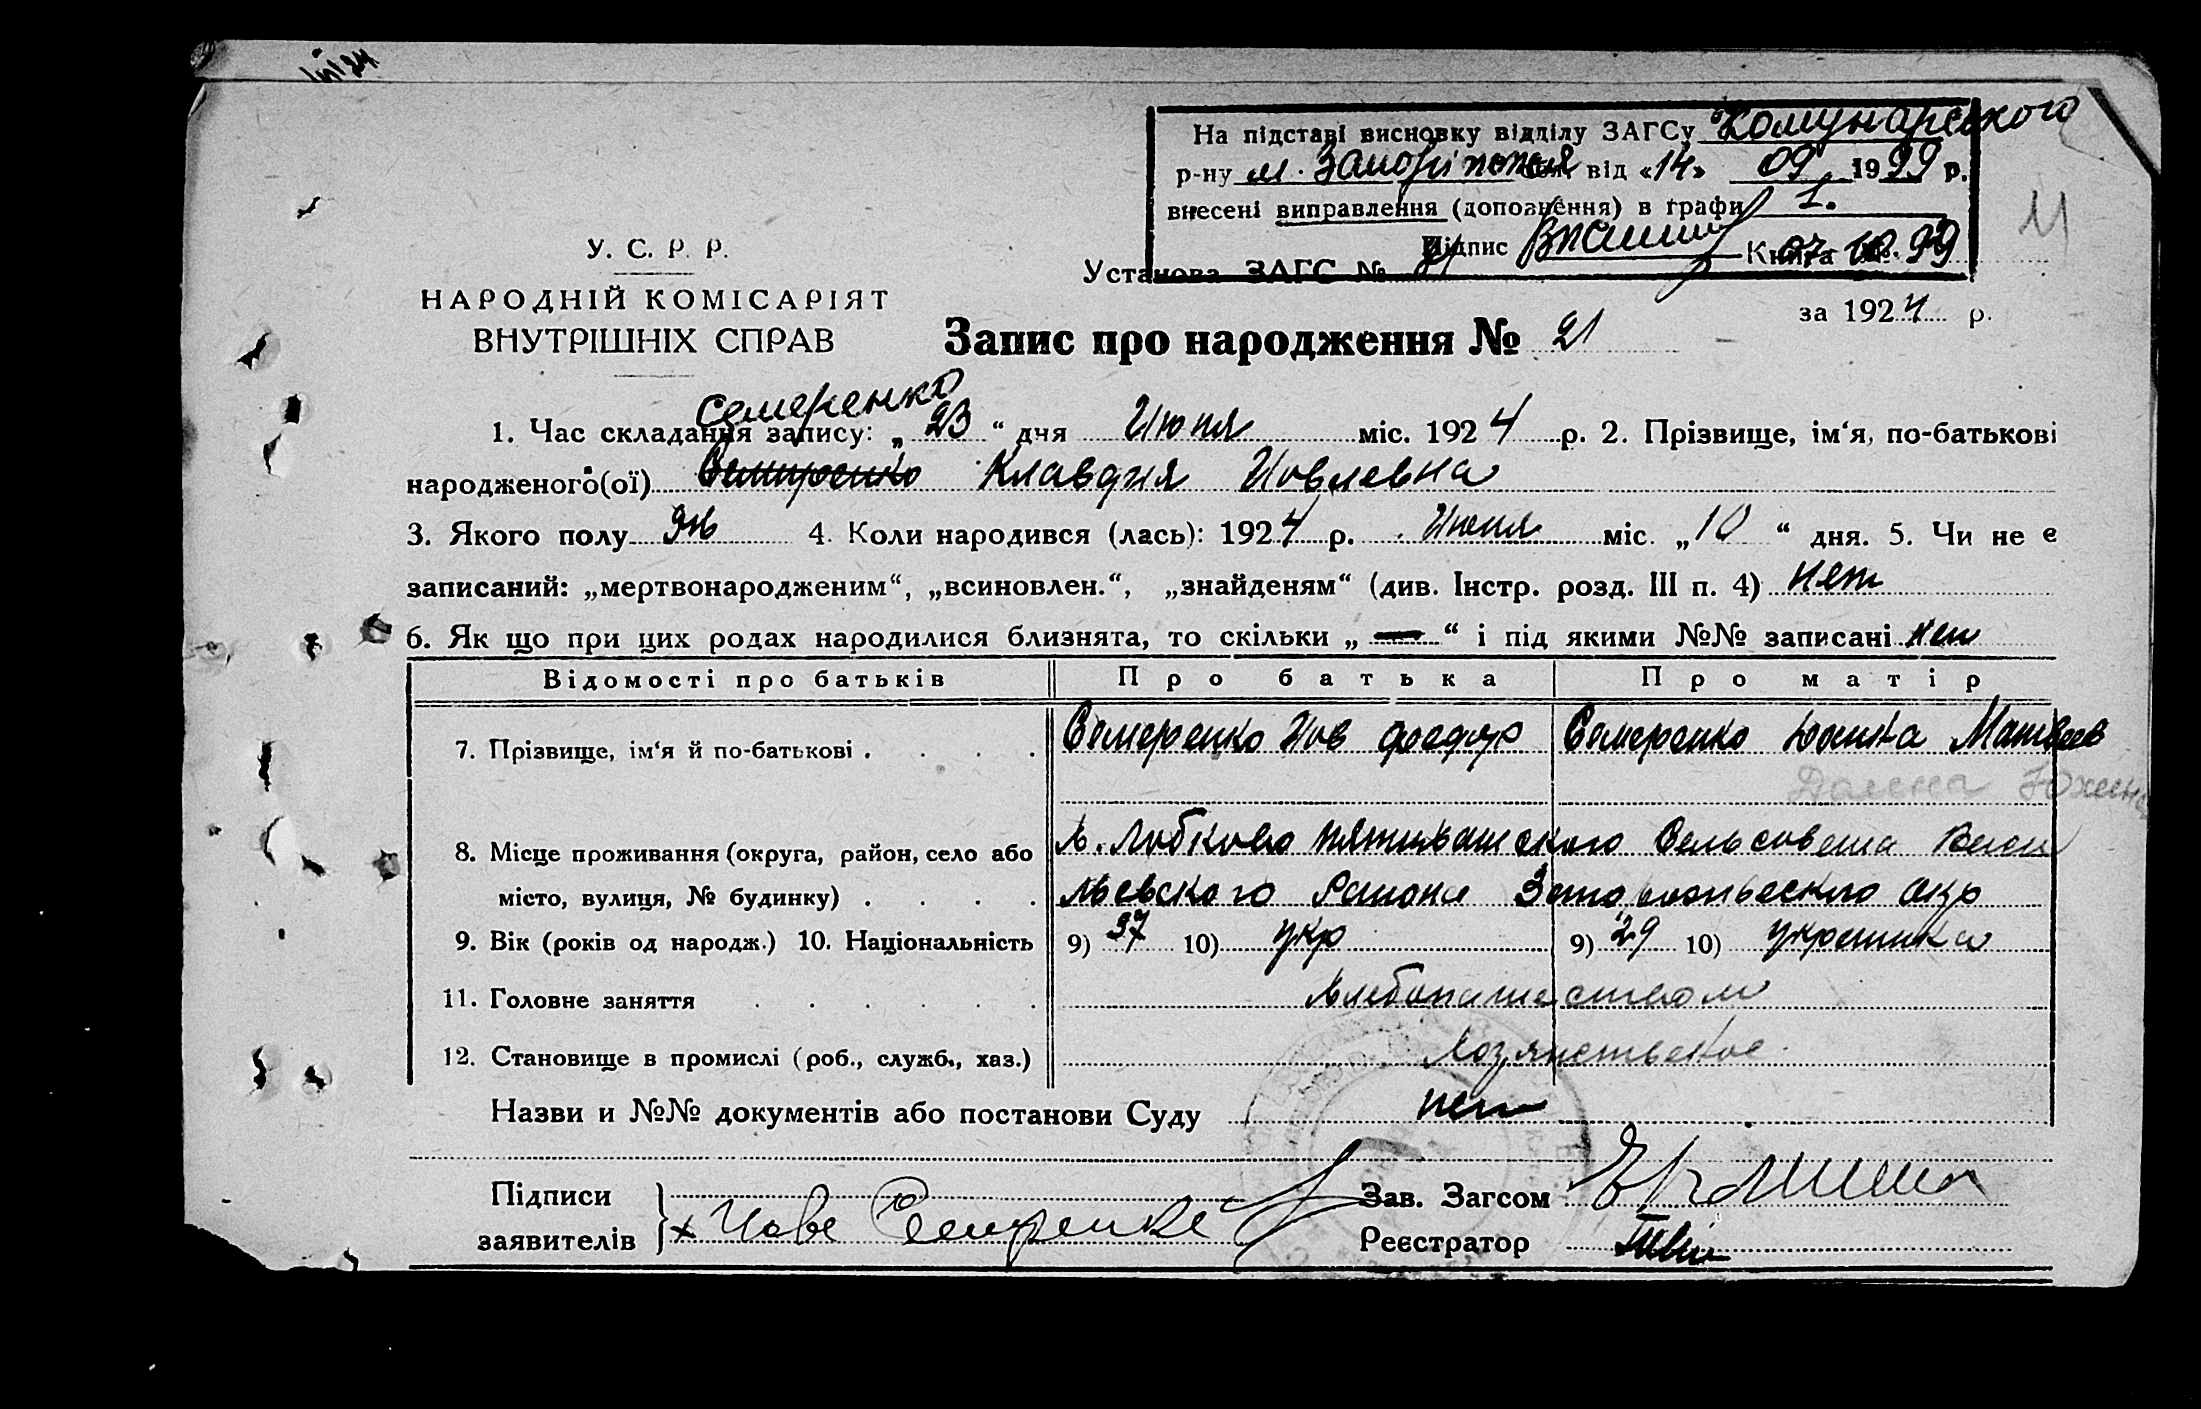 На підставі висновку відділу ЗАГСу Комунарського
р-ну м. Запоріжжя обл. від «14» 09 1999 р.
внесені виправлення (доповнення) в графи 1.
Підпис 07 10. 99
У. С. Р. Р.
Установа ЗАГС №
НАРОДНІЙ КОМІСАРІЯТ
ВНУТРІШНІХ СПРАВ
за 1924 р.
Запис про народження № 21
Семеренко
1. Час складання запису: „ 23 “ дня Июня міс. 1924 р. 2. Прізвище, ім‘я, по-батькові
народженого(ої) Клавдия Иовлевна
3. Якого полу жн 4. Коли народився (лась): 1924 р. Июня міс. „ 10 “ дня. 5. Чи не є
записаний: „мертвонародженим“, „всиновлен.“, „знайденям“ (див. Інстр. розд. III п. 4) нет
6. Як що при цих родах народилися близнята, то скільки „ — “ і під якими №№ записані нет
Відомості про батьків Про батька Про матір
7. Прізвище, ім‘я й по-батькові . . . . Семеренко Иов Феодор Семеренко Матвеев
8. Місце проживання (округа, район, село або Сельсовета
місто, вулиця, № будинку) . . . . Района окр
9. Вік (років од народж.) 10. Національність 9) 37 10) укр 9) 29 10) украинка
11. Головне заняття . . . . . . Хлебопашеством
12. Становище в промислі (роб., служб., хаз.) Хозяйственное
Назви и №№ документів або постанови Суду нет
Підписи
заявителів х Иов Семеренко
Зав. Загсом
Реєстратор